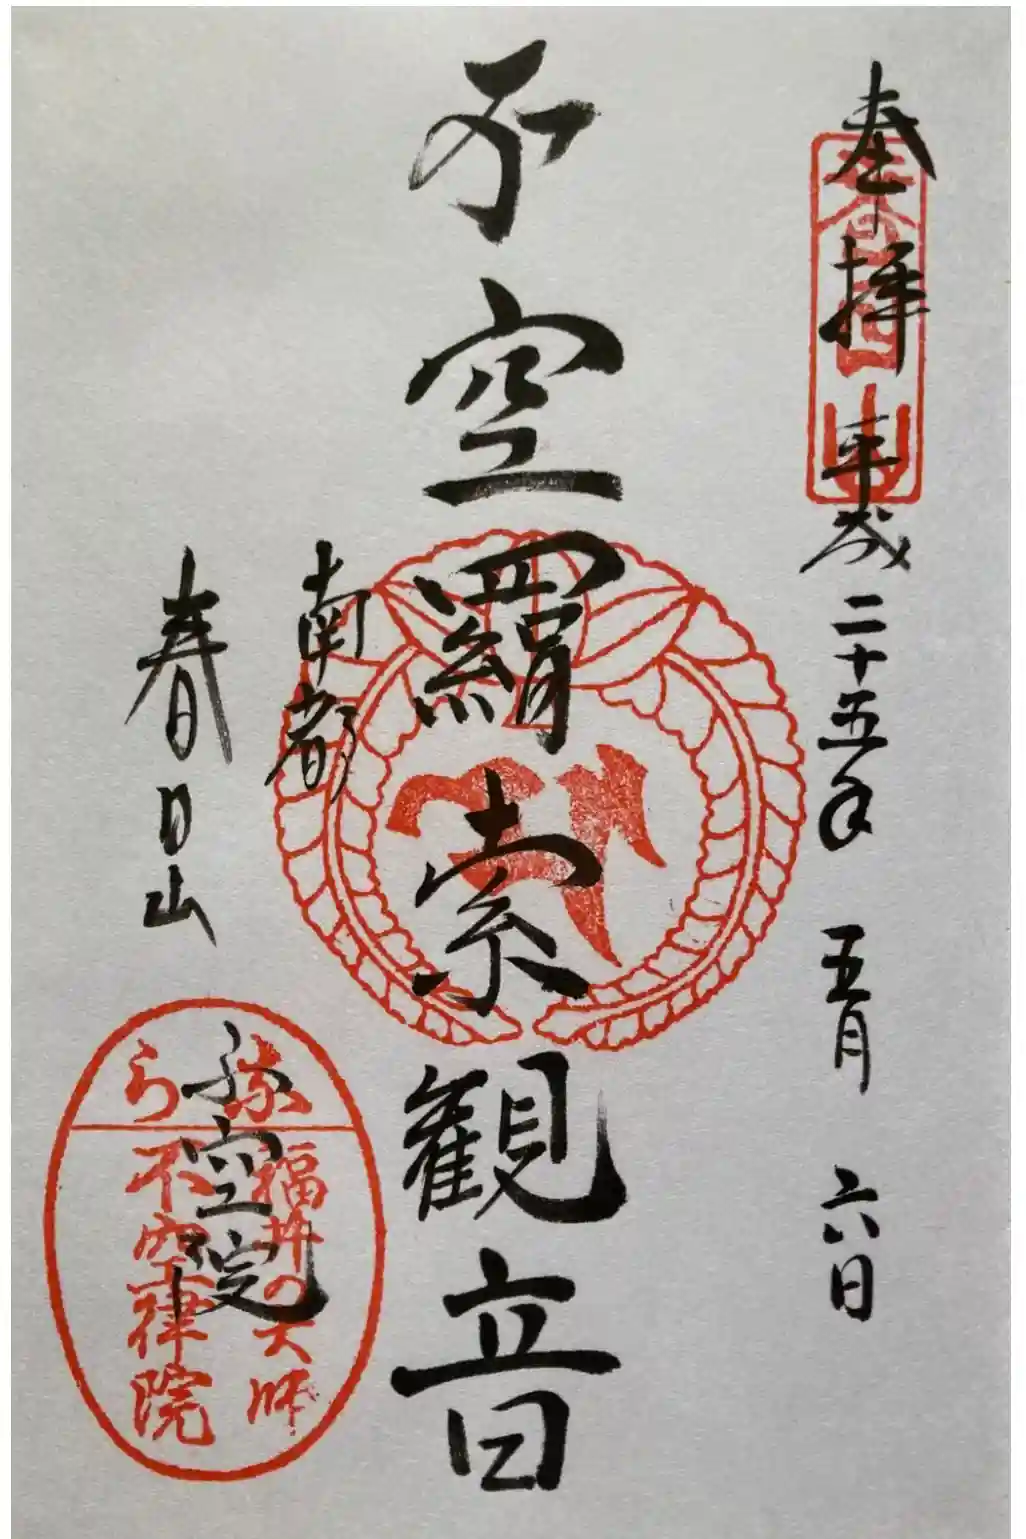 奉拝 平成二十五年 五月 六日
春日山
不空羂索観音
南都
春日山
不空院
なら
福井の大師
不空律院